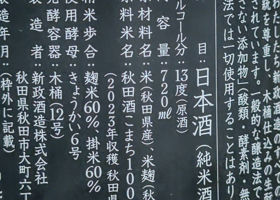 で尊りました秋田の地で
されます。一般的な醸造法で
さない添加物(酸類・酵素剤・無
法では一切使用することはあり
目:日本酒(純米酒
ルコール分:13度(原酒)
容量:720㎖
材料名:米(秋田県産)、米麹(秋
原料米名:秋田酒こまち100
(2023年収穫 秋田県
精米歩合:麹米60%、掛米60%
使用酵母:きょうかい6号
醸造容器:木桶(12号)
製造者:新政酒造株式会社
秋田県秋田市大町六丁
製造年月:(枠外に記載)